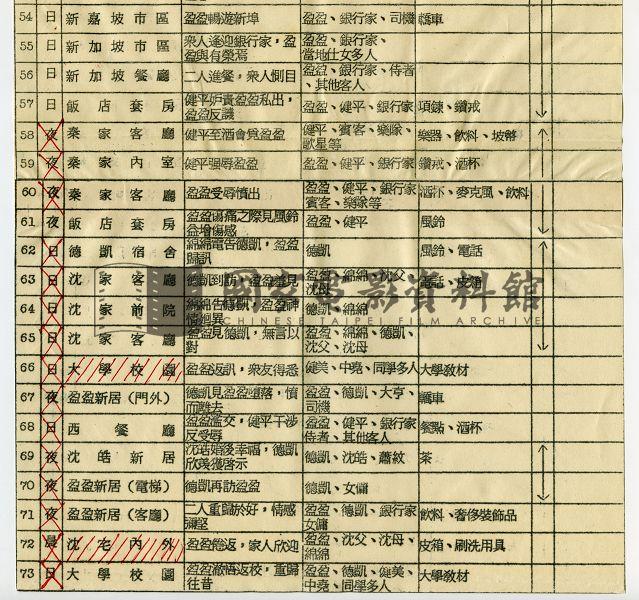 54 日 新嘉坡市區 盈盈暢遊新埠 盈盈、銀行家、司機 轎車
55 日 新加坡市區 衆人逢迎銀行家，盈盈與有榮焉 盈盈、銀行家、當地仕女多人
56 日 新加坡餐廳 二人進餐，衆人側目 盈盈、銀行家、侍者、其他客人
57 日 飯店套房 健平妒責盈盈私出，盈盈反譏 盈盈、健平、銀行家 項鍊、鑽戒
58 夜 秦家客廳 健平至酒會覓盈盈 健平、賓客、樂隊、歌星等 樂器、飲料、坡幣
59 夜 秦家內室 健平強辱盈盈 盈盈、健平、銀行家 鑽戒、酒杯
60 夜 秦家客廳 盈盈受辱憤出 盈盈、健平、銀行家賓客、樂隊等 酒杯、麥克風、飲料
61 夜 飯店套房 盈盈傷痛之際見風鈴益增傷感 盈盈、健平 風鈴
62 日 德凱宿舍 綿綿電告德凱，盈盈歸訊 德凱 風鈴、電話
63 日 沈家客廳 德凱到訪，盈盈 見 盈盈、綿綿、沈父沈母 電話、皮箱
64 日 沈家前院 綿綿告德凱，盈盈神情迥異 德凱、綿綿
65 日 沈家客廳 盈盈見德凱，無言以對 盈盈、綿綿、德凱、沈父、沈母
66 日 大學校園 盈盈返訊，衆友得悉 健美、中堯、同學多人 大學教材
67 夜 盈盈新居（門外） 德凱見盈盈墮落，憤而離去 盈盈、德凱、大亨、司機 轎車
68 日 西餐廳 盈盈濫交，健平干涉反受辱 盈盈、健平、銀行家侍者、其他客人 餐點、酒杯
69 夜 沈皓新居 沈皓婚後幸福，德凱欣羨獲啓示 德凱、沈皓、蕭紋 茶
70 夜 盈盈新居（電梯） 德凱再訪盈盈 德凱、女傭
71 夜 盈盈新居（客廳） 二人重歸於好，情感彌堅 盈盈、德凱、銀行家女傭 飲料、奢侈裝飾品
72 晨 沈宅內外 盈盈 返，家人欣迎 盈盈、沈父、沈母、綿綿 皮箱、刷洗用具
73 日 大學校園 盈盈澈悟返校，重歸往昔 盈盈、德凱、健美、中堯、同學多人 大學教材
國家電影資料館
CHINESE TAIPEI FILM ARCHIVE